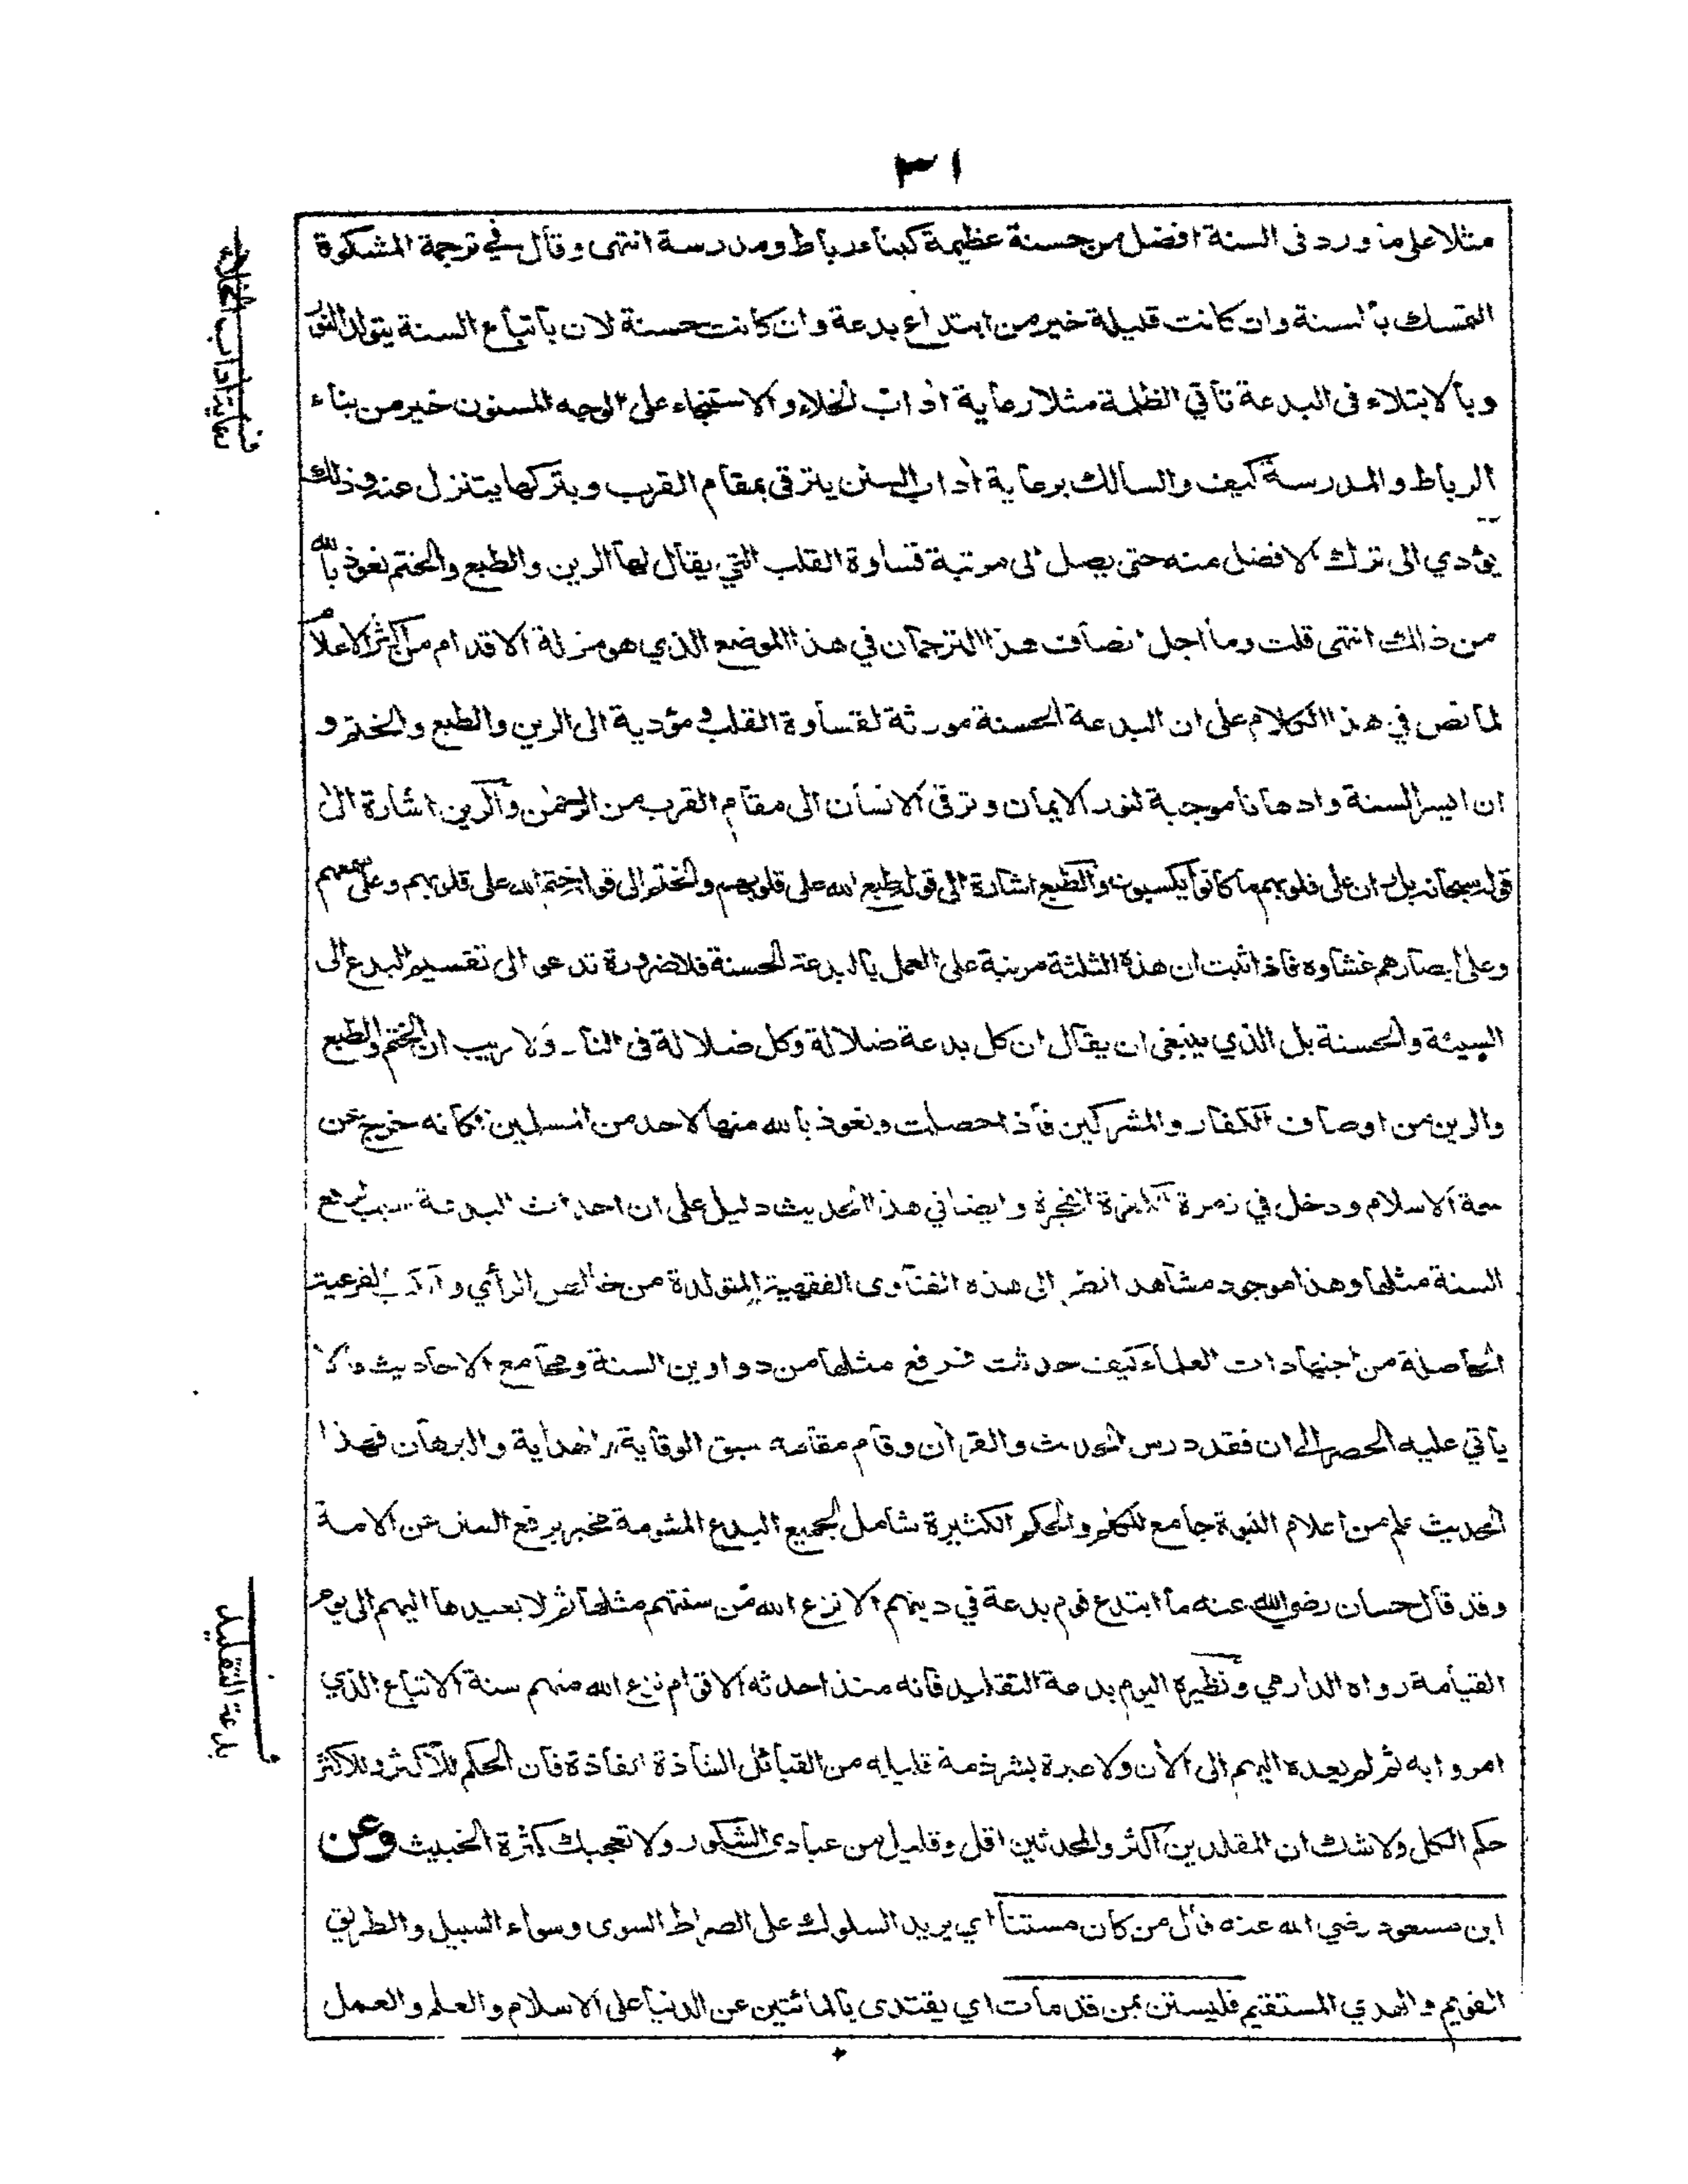 ٣١
مثلا على ما ورد فى السنة افضل من حسنة عظيمة كبناء رباط ومدرسة انتهى وقال في ترجمة المشكوة
التمسك بالسنة وان كانت قليلة خير من ابتداع بدعة وان كانت حسنة لان باتباع السنة يتولد النور
وبالابتلاء فى البدعة تأتي الظلمة مثلا رعاية اداب الخلاء والاستنجاء على الوجه المسنون خير من بناء
الرباط والمدرسة كيف والسالك برعاية اداب السنن يترقى بمقام القرب وبتركها يتنزل عنه وذلك
يؤدي الى ترك الافضل منه حتى يصل الى مرتبة قساوة القلب التي يقال لها الرين والطبع والختم نعوذ بالله
من ذالك انتهى قلت وما اجل انصاف هذا الترجمان في هذا الموضع الذي هو مزلة الاقدام من اكثر الاعلام
لما نص في هذا الكلام على ان البدعة الحسنة مورثة لقساوة القلب ومؤدية الى الرين والطبع والختم و
ان ايسر السنة وادهانا موجبة لنور الايمان وترقى الانسان الى مقام القرب من الرحمن والرين اشارة الى
قوله سبحانه بل ران على قلوبهم ما كانوا يكسبون والطبع اشارة الى قوله طبع الله على قلوبهم والختم الى قوله ختم الله على قلوبهم وعلى سمعهم
وعلى ابصارهم غشاوه فاذا ثبت ان هذه الثلثة مرتبة على العمل بالبدعة الحسنة فلا ضرورة تدعو الى تقسيم البدع الى
السيئة والحسنة بل الذي ينبغى ان يقال ان كل بدعة ضلالة وكل ضلالة فى النار ولا ريب ان الختم والطبع
والرين من اوصاف الكفار والمشركين فاذا حصلت ونعوذ بالله منها لاحد من المسلمين فكانه خرج عن
سمة الاسلام ودخل في زمرة الكفرة الفجرة وايضا في هذا الحديث دليل على ان احداث البدعة سبب لرفع
السنة مثلها وهذا موجود مشاهد انظر الى هذه الفتاوى الفقهية المتولدة من خالص الرأي و الفرعية
الحاصلة من اجتهادات العلماء كيف حدثت فرفع مثلها من دواوين السنة ومجامع الاحاديث ما لا
يأتي عليه الحصر الى ان فقد درس الحديث والقران وقام مقامه سبق الوقاية والهداية والبرهان فهذا
الحديث علم من اعلام النبوة جامع للكلم والحكم الكثيرة شامل لجميع البدع المشومة مخبر برفع السنن عن الامة
وقد قال حسان رضي الله عنه ما ابتدع قوم بدعة في دينهم الا نزع الله من سنتهم مثلها ثم لا يعيدها اليهم الى يوم
القيامة رواه الدارمي ونظيره اليوم بدعة التقليد فانه منذ احدثه الاقوام نزع الله منهم سنة الاتباع الذي
امروا به ثم لم يعده اليهم الى الأن ولا عبرة بشرذمة قليله من القبائل الشاذة الفاذة فان الحكم للاكثر وللاكثر
حكم الكل ولا شك ان المقلدين اكثر والمحدثين اقل وقليل من عبادي الشكور ولا تعجبك كثرة الخبيث وعن
ابن مسعود رضي الله عنه قال من كان مستنا اي يريد السلوك على الصراط السوى وسواء السبيل والطريق
القويم والهدي المستقيم فليستن بمن قد مات اي يقتدى بالمائتين عن الدنيا على الاسلام والعلم والعمل
ف رعاية اداب الخلاء
ف بدعة التقليد